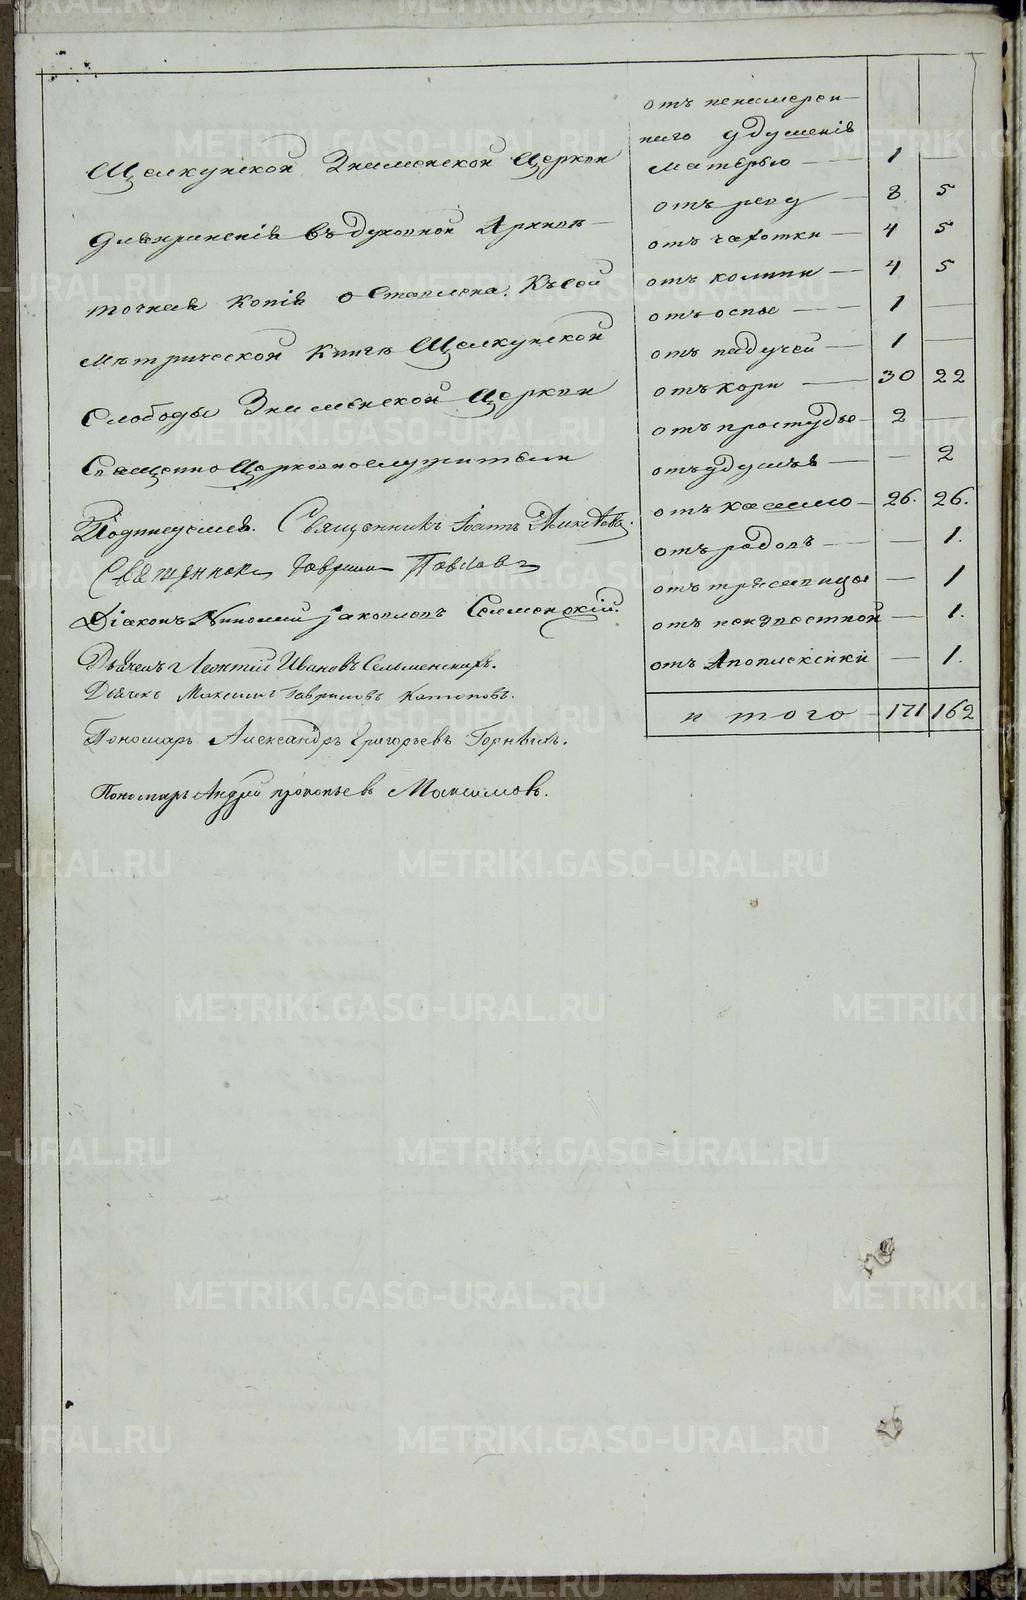 Щелкунской Знаменской Церкви
для храненія въ духовной Архив
точная копія оставлена. Къ сей
мѣтрической книгѣ Щелкунской
Слободы Знамѣнской Церкви
Священноцерковнослужители
Подписуемся. Священникъ Іоаннъ
Священникъ Гавриилъ Павловъ
Діаконъ Николай Іаковлевъ Селменскій.
Дьячекъ Леонтій Ивановъ Сельменскихъ.
Дьячекъ Максимъ Гавриловъ Катаповъ.
Пономарь Александръ Григорьевъ Горныхъ.
Пономарь Андрей прокопьевъ Максимовъ.
отъ ненамерен-
наго удушенія
матерью — 1 —
отъ роду — 8 5
отъ чахотки — 4 5
отъ колики — 4 5
отъ оспы — 1 —
отъ падучей — 1 —
отъ кори — 30 22
отъ простуды — 2 —
отъ удушья — — 2
отъ кашлю — 26. 26.
отъ родовъ — — 1.
отъ трясавицы — 1
отъ неизвестной — 1.
отъ Апоплексіки — 1.
итого — 171 162
METRIKI.GASO-URAL.RU